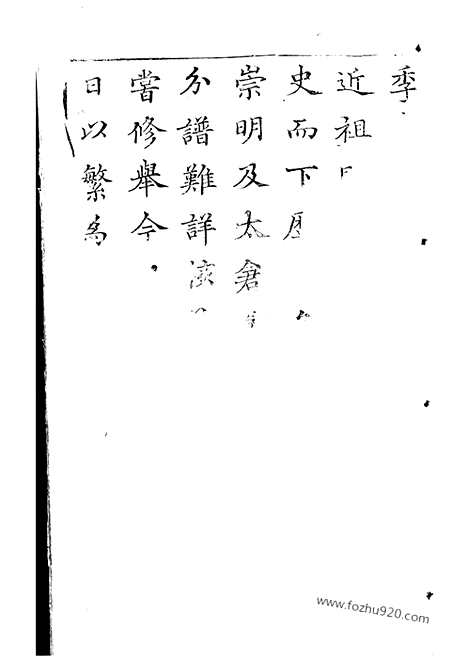 季
近祖
史而下
崇明及太倉
分譜難詳
嘗修舉今
日以繁為
www.fozhu920.com